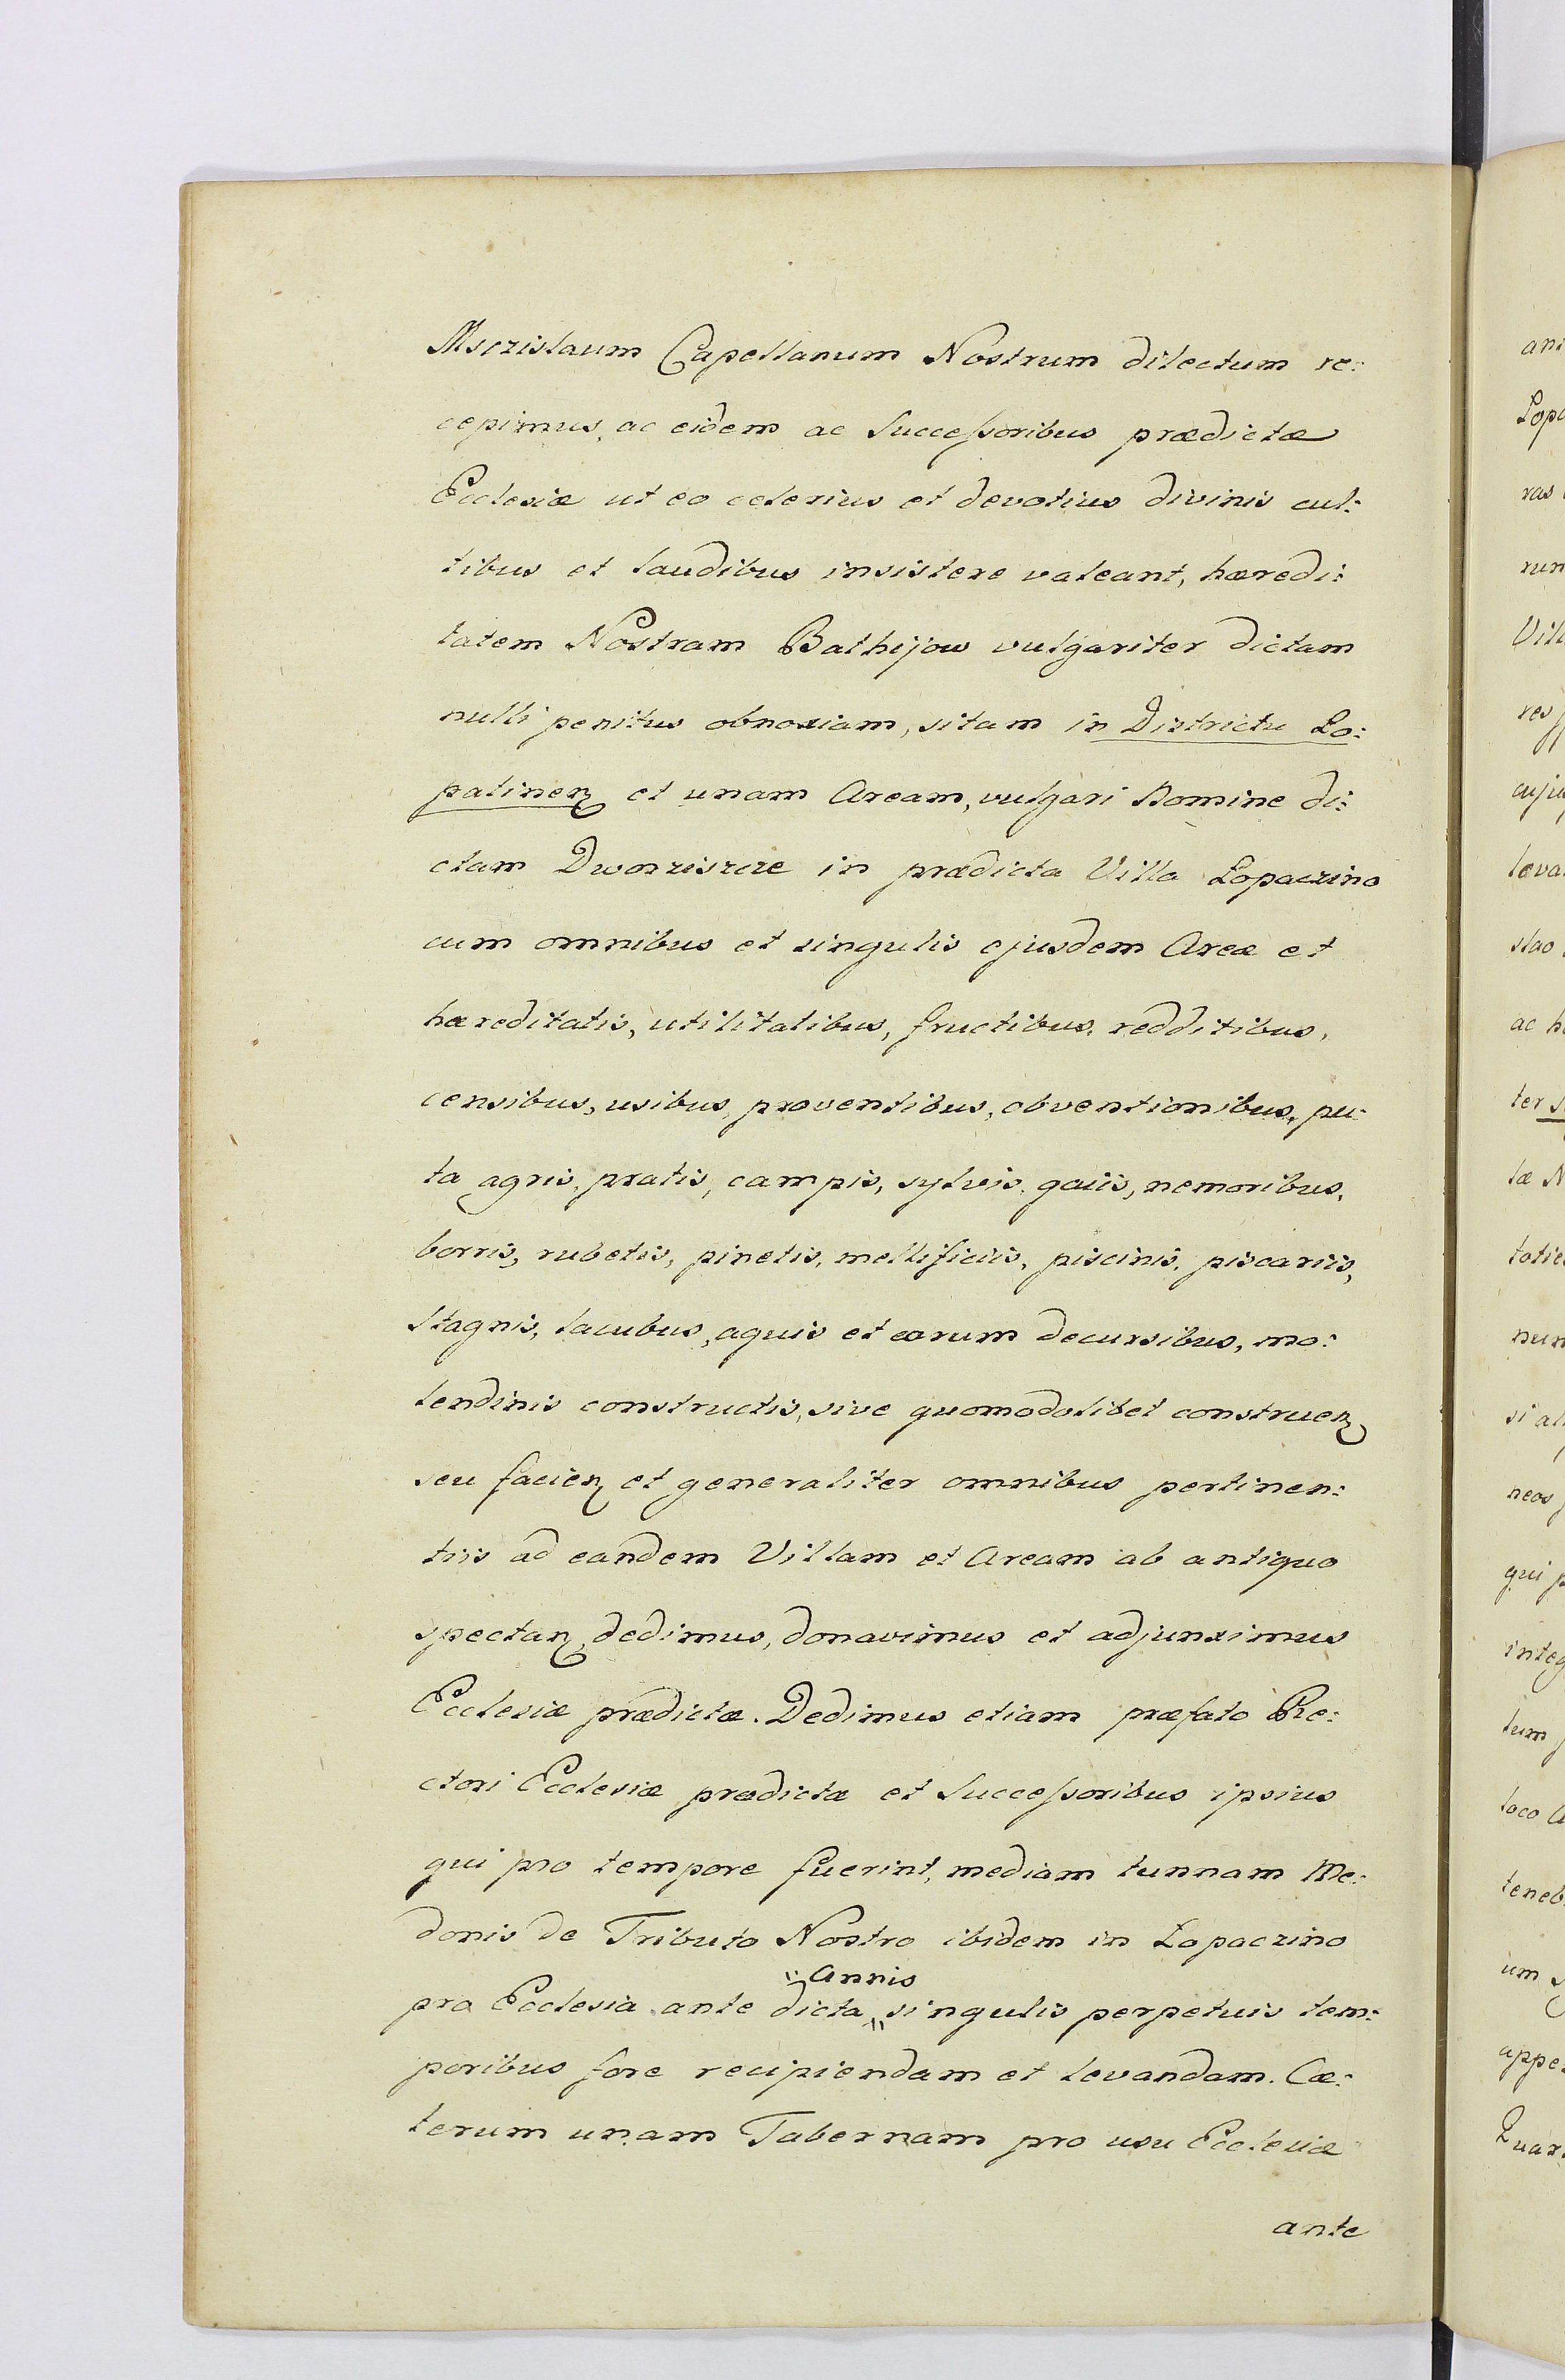 Msczislaum Capellanum Nostrum dilectum re:
cepimus, ac eidem ac Successoribus prædictæ
Ecclesiæ ut eo celerius et devotius divinis cul:
tibus et laudibus insistere valeant, hæredi:
tatem Nostram Bathijow vulgariter dictam
nulli penitus obnoxiam, sitam in Districtu Lo:
patinen et unam Aream, vulgari Nomine di:
ctam Dworziszcze in prædicta Villa Lopaczino
cum omnibus et singulis ejusdem Areæ et
hæreditatis, utilitatibus, fructibus, redditibus,
censibus, usibus, proventibus, obventionibus, pu:
ta agris, pratis, campis, sylvis, gaiis, nemoribus,
borris, rubetis, pinetis, mellificiis, piscinis, piscariis,
Stagnis, lacubus, aquis et earum decursibus, mo:
lendinis constructis, sive quomodolibet construen
seu facien et generaliter omnibus pertinen:
tiis ad eandem Villam et Aream ab antiquo
spectan dedimus, donavimus et adjunximus
Ecclesiæ prædictæ. Dedimus etiam præfato Re:
ctori Ecclesiæ prædictæ et Successoribus ipsius
qui pro tempore fuerint, mediam tunnam Me:
donis de Tributo Nostro ibidem in Lopaczino
Annis
pro Ecclesia ante dicta singulis perpetuis tem:
poribus fore recipiendam et levandam. Cæ:
terum unam Tabernam pro usu Ecclesiæ
ante